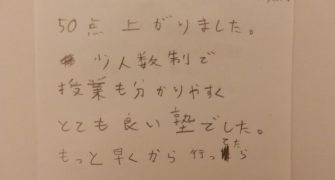 50点上がりました。
少人数制で
授業も分かりやすく
とても良い塾でした。
もっと早くから行ったら